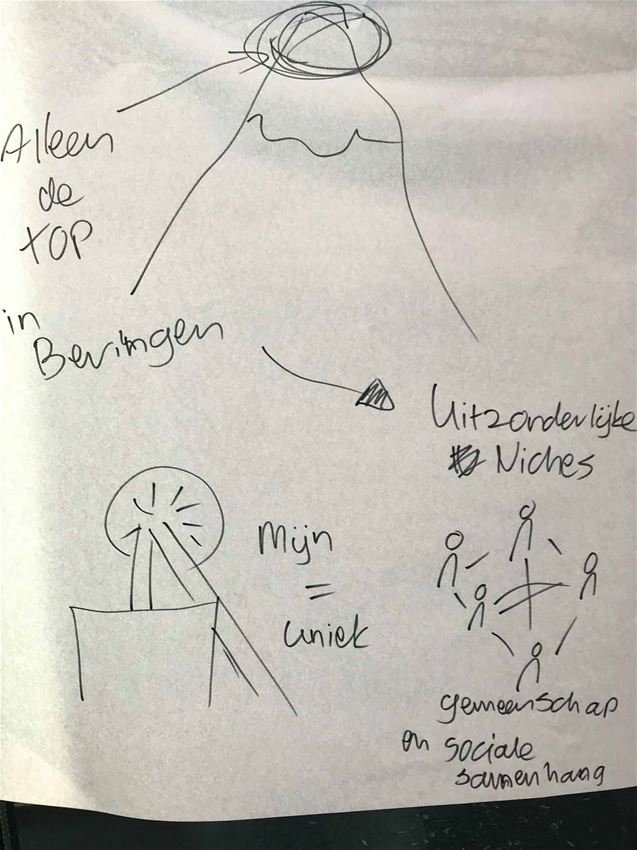 Alleen
de
TOP
in
Beringen
Uitzonderlijke
Niches
Mijn
=
uniek
gemeenschap
en sociale
samenhang